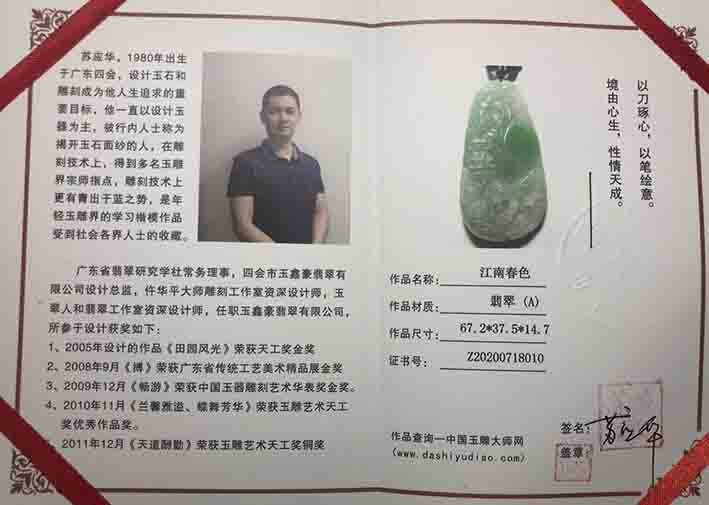 苏应华，1980年出生
于广东四会，设计玉石和
雕刻成为他人生追求的重
要目标，他一直以设计玉
器为主，被行内人士称为
揭开玉石面纱的人，在雕
刻技术上，得到多名玉雕
界宗师指点，雕刻技术上
更有青出于蓝之势，是年
轻玉雕界的学习楷模作品
受到社会各界人士的收藏。
广东省翡翠研究学社常务理事，四会市玉鑫豪翡翠有
限公司设计总监，仵华平大师雕刻工作室资深设计师，玉
翠人和翡翠工作室资深设计师，任职玉鑫豪翡翠有限公司，
所参于设计获奖如下：
1、2005年设计的作品《田园风光》荣获天工奖金奖
2、2008年9月《搏》荣获广东省传统工艺美术精品展金奖
3、2009年12月《畅游》荣获中国玉器雕刻艺术华表奖金奖。
4、2010年11月《兰馨雅逸、蝶舞芳华》荣获玉雕艺术天工
奖优秀作品奖。
5、2011年12月《天道酬勤》荣获玉雕艺术天工奖铜奖
以刀琢心，以笔绘意。
境由心生，性情天成。
作品名称：江南春色
作品材质：翡翠（A）
作品尺寸：67.2*37.5*14.7
证书号：Z20200718010
作品查询—中国玉雕大师网
(www.dashiyudiao.com)
签名：苏应华
盖章：